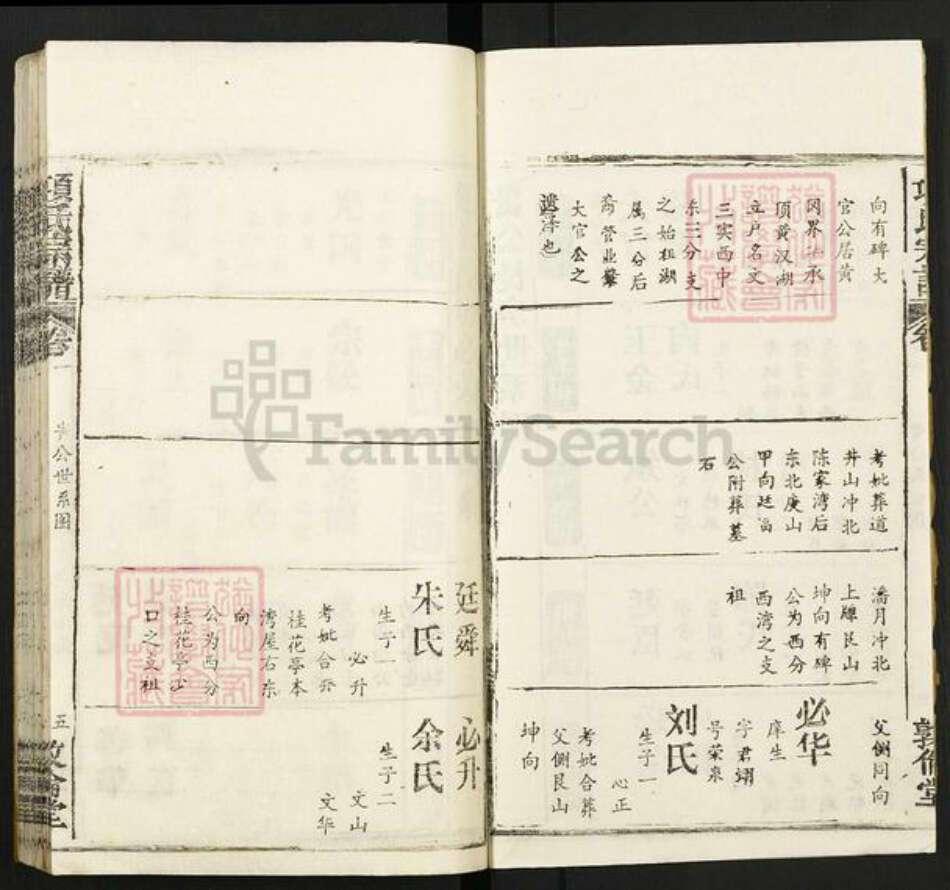 向有碑大
官公居黄
冈界
承
顶黄汉湖
立户名文
三实西中
东三分支
之始祖湖
属三分后
裔管业
大官公之
遗泽也
考妣葬道
井山冲北
陈家湾后
东北庚山
甲向廷
公附葬墓
石
潘月冲北
上
艮山
坤向有碑
公为西分
西湾之支
祖
父侧同向
必华
庠生
字君翊
号荣泉
刘氏
生子一
心正
考妣合葬
父侧艮山
坤向
敦伦堂
FamilySearch
廷舜
朱氏
生子一
必升
考妣合葬
桂花亭本
湾屋右东
向
公为西分
桂花亭
口之支祖
必升
余氏
生子二
文山
文华
項氏宗譜
卷一
公世系图
五
敦倫堂